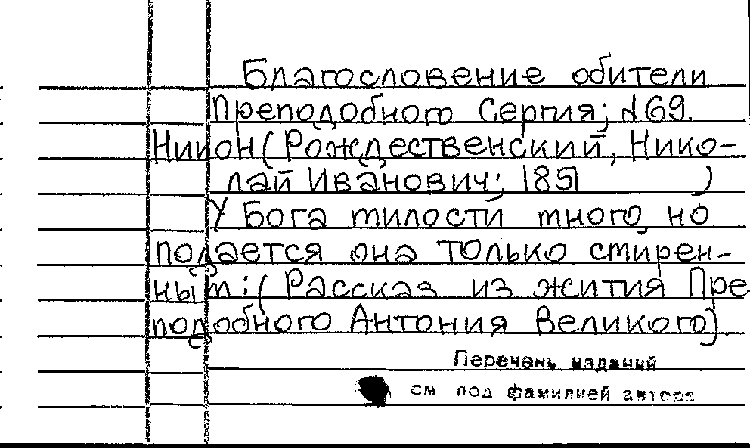 Благословение обители
Преподобного Сергия; №69.
Никон (Рождественский, Нико-
лай Иванович; 1851 )
У Бога милости много, но
подается она только смирен-
ным: (Рассказ из жития Пре
подобного Антония Великого)
Перечень изданий
см под фамилией автора